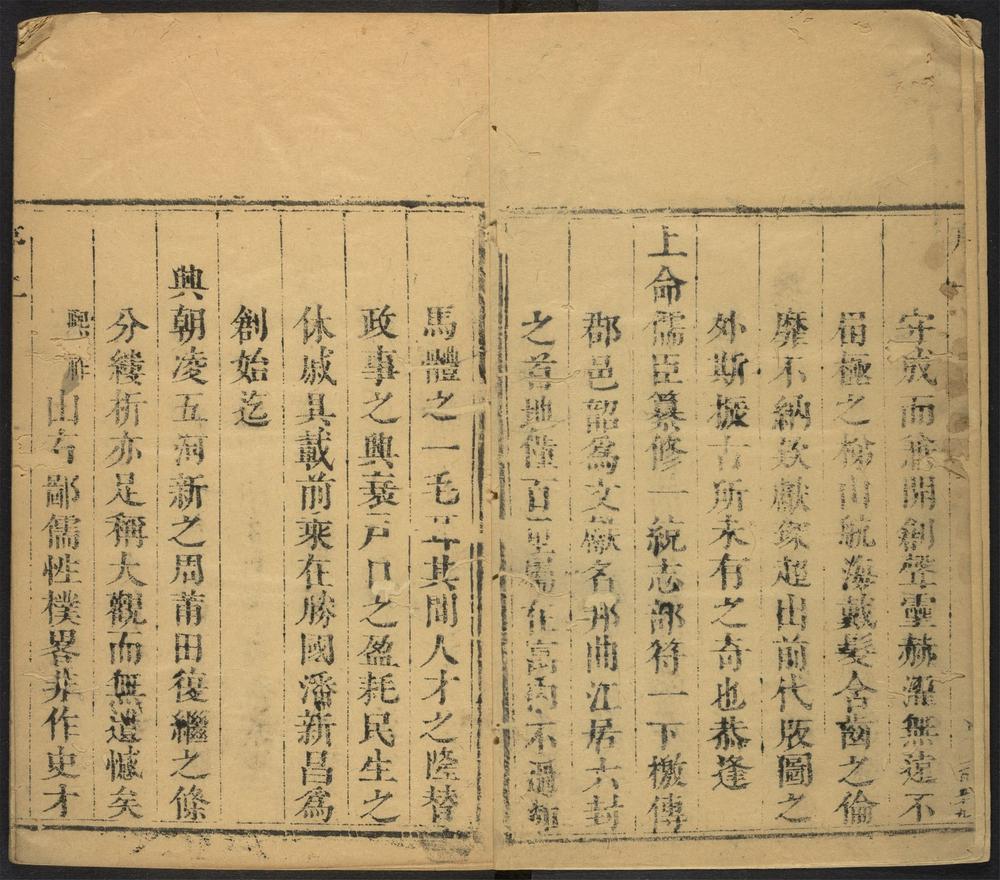 守成而兼開創聲靈赫濯無遠不
屆極之梯山航海戴髮含齒之倫
靡不納欵獻琛超出前代版圖之
外斯振古所未有之奇也恭逢
上命儒臣纂修一統志部符一下檄傳
郡邑韶為文獻名邦曲江居六封
之首地僅百里屬在寓內不過師
馬體之一毛耳其間人才之隆替
政事之興衰戶口之盈耗民生之
休戚具載前乘在勝國潘新昌為
創始迄
興朝凌五河新之周莆田復繼之條
分縷析亦足稱大觀而無遺憾矣
熙祚山右鄙儒性樸畧非作史才